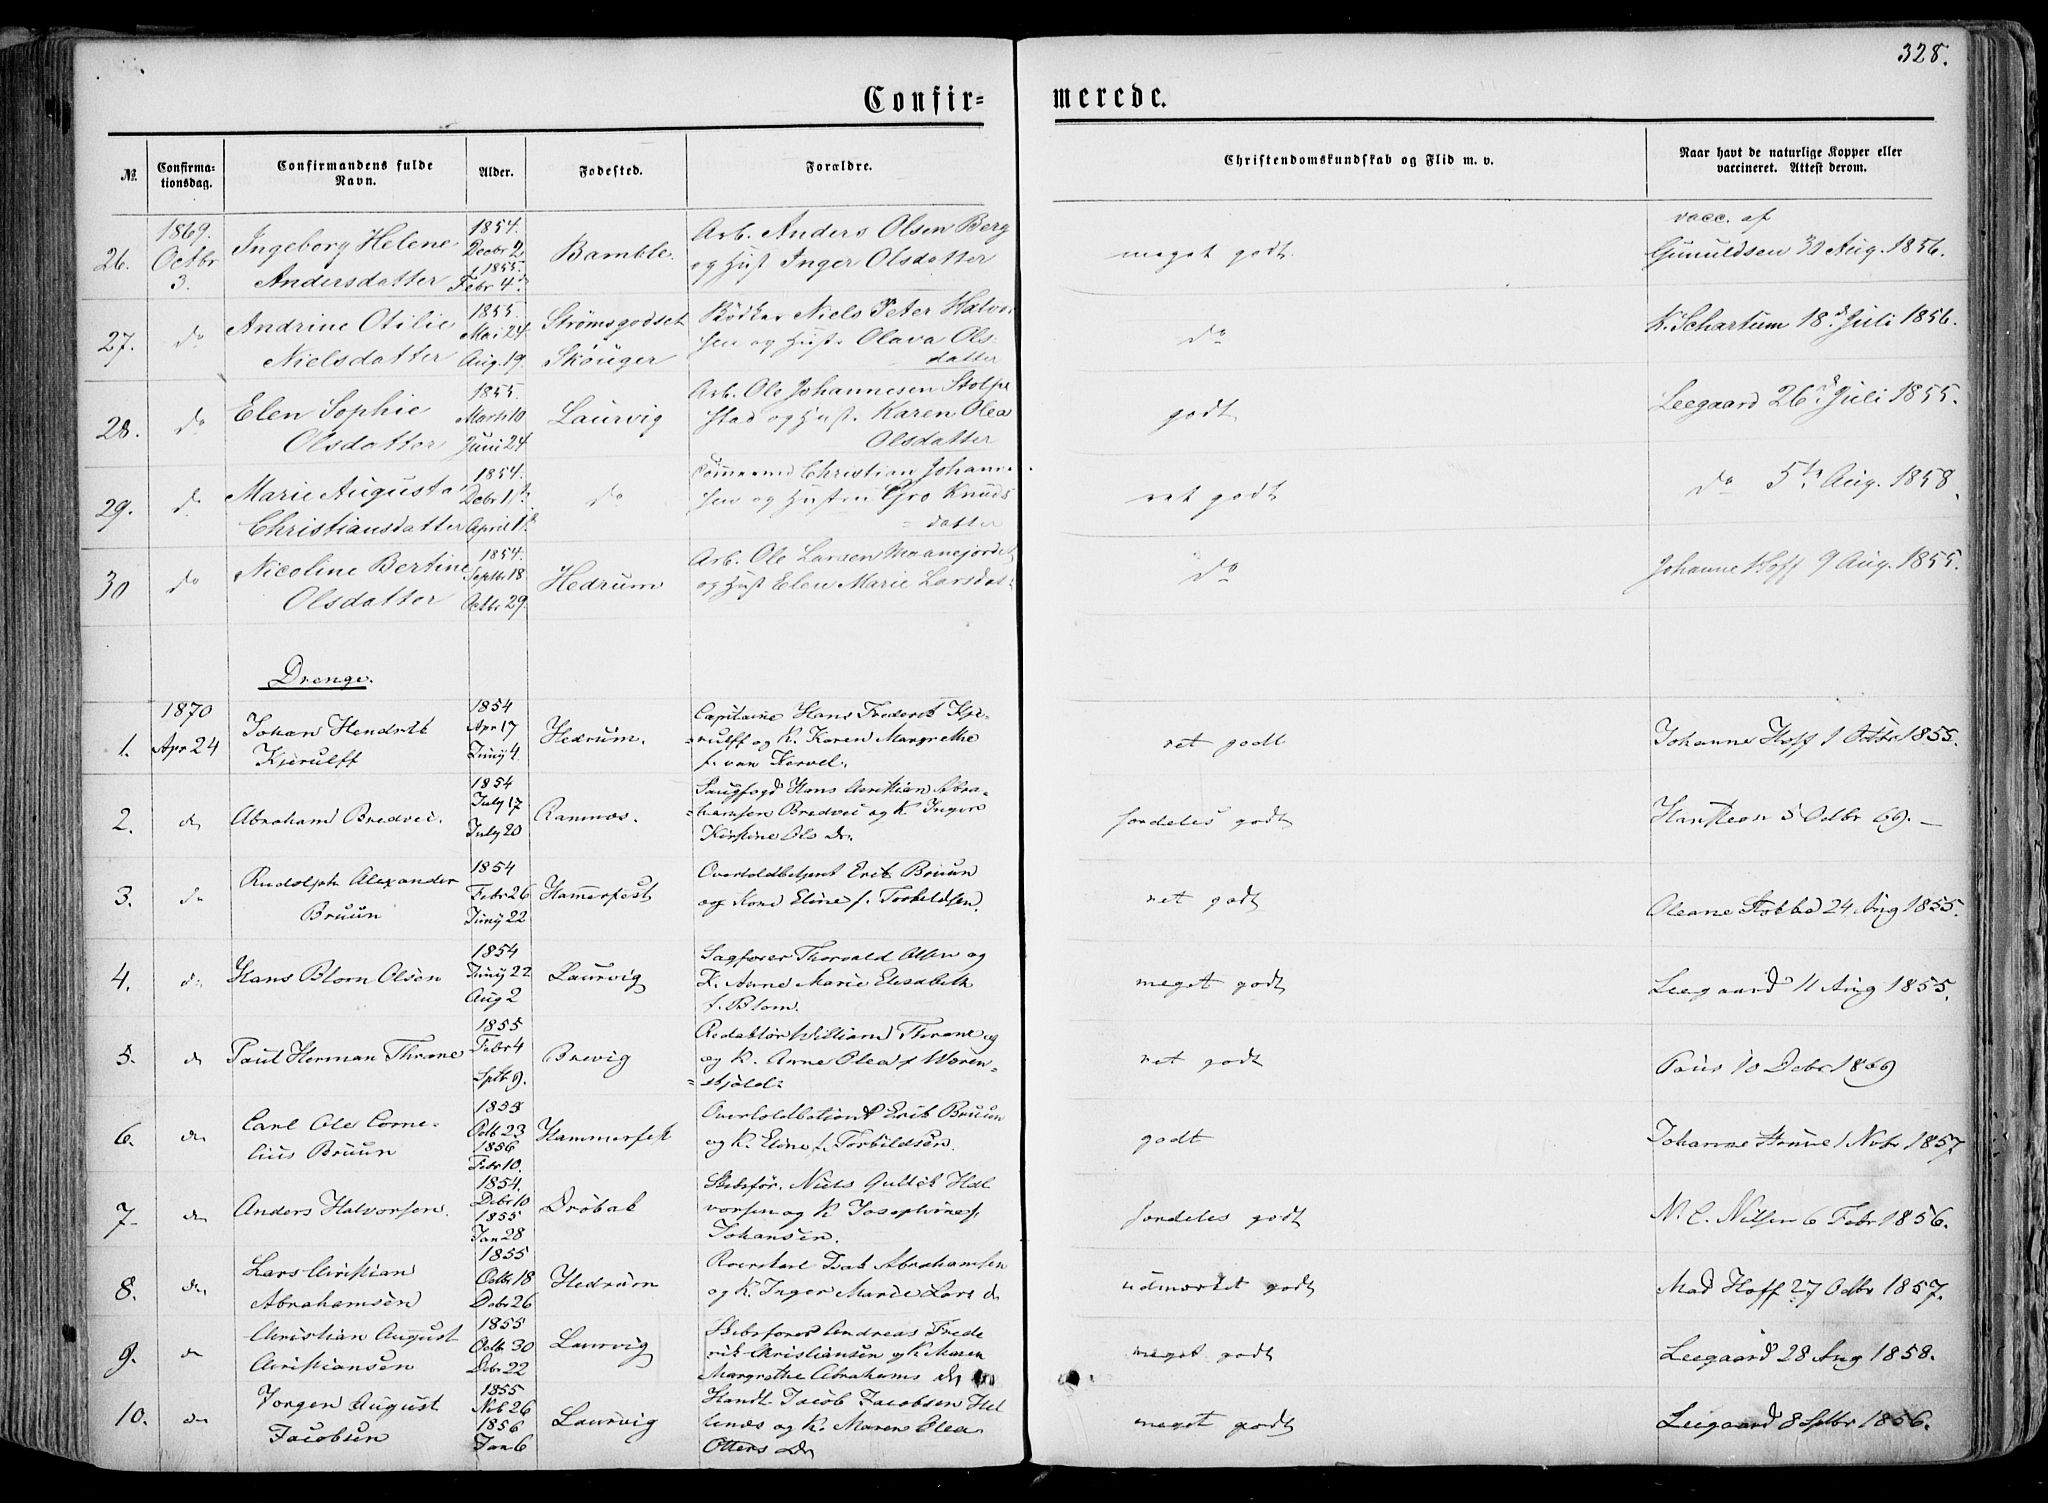 328.
Confir= merede.
№. Confirma-tionsdag. Confirmandens fulde Navn. Alder. Fødested. Forældre. Christendomskundskab og Flid m. v. Naar havt de naturlige Kopper eller vaccineret. Attest derom.
1869. 1854. Arb. Anders Olsen Berg vacc. af
26. Octbr Ingeborg Helene Decbr 2 Bamble. og Hust Inger Olsdatter meget godt. Gunuldsen 30 Aug. 1856.
3. Andersdatter 1855. Febr 4
27. do Andrine Otilie 1855. Strømsgodset Bödker Niels Peter Halvor do K. Schartum 18 d Juli 1856.
Nielsdatter Mai 24 Aug. 19 Skouger sen og Hust. Olava Ols-
datter
28. do Elen Sophie 1855. Laurvig Arb. Ole Johannesen Stolpe godt Leegaard 26 d Juli 1855.
Olsdatter Marts 10 Juni 24 stad og Hust. Karen Olea
Olsdatter
29. do Marie Augusta 1854. do Christian Johanne- ret godt do 5te Aug. 1858.
Christiansdatter Debr 1 April 1 sen og Hustru Gro Knuds
datter
30 do Nicoline Bertine 1854. Hedrum Arb. Ole Larsen do Johanne Hoff 9 Aug. 1855.
Olsdatter Septbr 18 Octbr 29. og Hust Elen Marie Larsdat-
Drenge.
1870 1854 Capitaine Hans Frederik Kje-
1. Apr 24 Johan Hendrik Apr 17 Hedrum. =rulff og K. Karen Margrethe ret godt Johanne Hoff 1 Octbr 1855.
Kjerulff Juny 4. f. van Kervel.
2. do Abraham Bredvei. 1854 July 17 July 20 Ramnæs. Hans Christian Abra- særdeles godt Hansteen 5 Octbr 69. —
=hamsen Bredvei og K Inger
Kirstine Ols Dr.
3. do Rudolph Alexander 1854 Hammerfest Overtoldbetjent Erik Bruun ret godt Oleane Stobbe 24 Aug 1855.
Bruun Febr 26 Juny 22 og Kone Eline f. Torkildsen.
4. do Hans Blom Olsen 1854 Juny 22 Aug 2 Laurvig Sagfører Thorvald Olsen og meget godt Leegaard 11 Aug 1855.
K. Anne Marie Elisabeth
f. Blom.
5. do Paul Herman Thrane 1855 Febr 4 Sptbr 9. Brevig Redaktør William Thrane og ret godt Paus 10 Debr 1869
og K. Anne Olea f Wæren-
=skjold.
6. do Carl Ole Corne- 1855 Octb 23 Hammerfest Erik Bruun godt Johanne 1 Novbr 1857
lius Bruun 1856 Febr 10. og K. Eline f. Torkildsen.
7. do Anders Halvorsen. 1854. Debr 10 1855 Jan 28 Drøbak Skibsfør. Niels Gullik Hal særdeles godt N. C. Nilsen 6 Febr 1856.
vorsen og K Josephine f.
Johansen.
8. do Lars Christian 1855 Hedrum Isak Abrahamsen udmærket godt Mad Hoff 27 Octbr 1857.
Abrahamsen Octbr 18 Debr 26 og K. Inger Marie Lars d.
9. do Christian August 1855 Laurvig Skibsfører Andreas Frede meget godt Leegaard 28 Aug 1858.
Christiansen Octb 30 Debr 22 rik Christiansen og K Maren
Margrethe Abrahams Dr
10. do Jørgen August 1855 Nvb 26 Laurvig Handl Jacob Jacobsen Hel meget godt Leegaard 8 Sptbr 1856.
Jacobsen 1856 Jan 6 lenæs og K. Maren Olea
Otters Dr